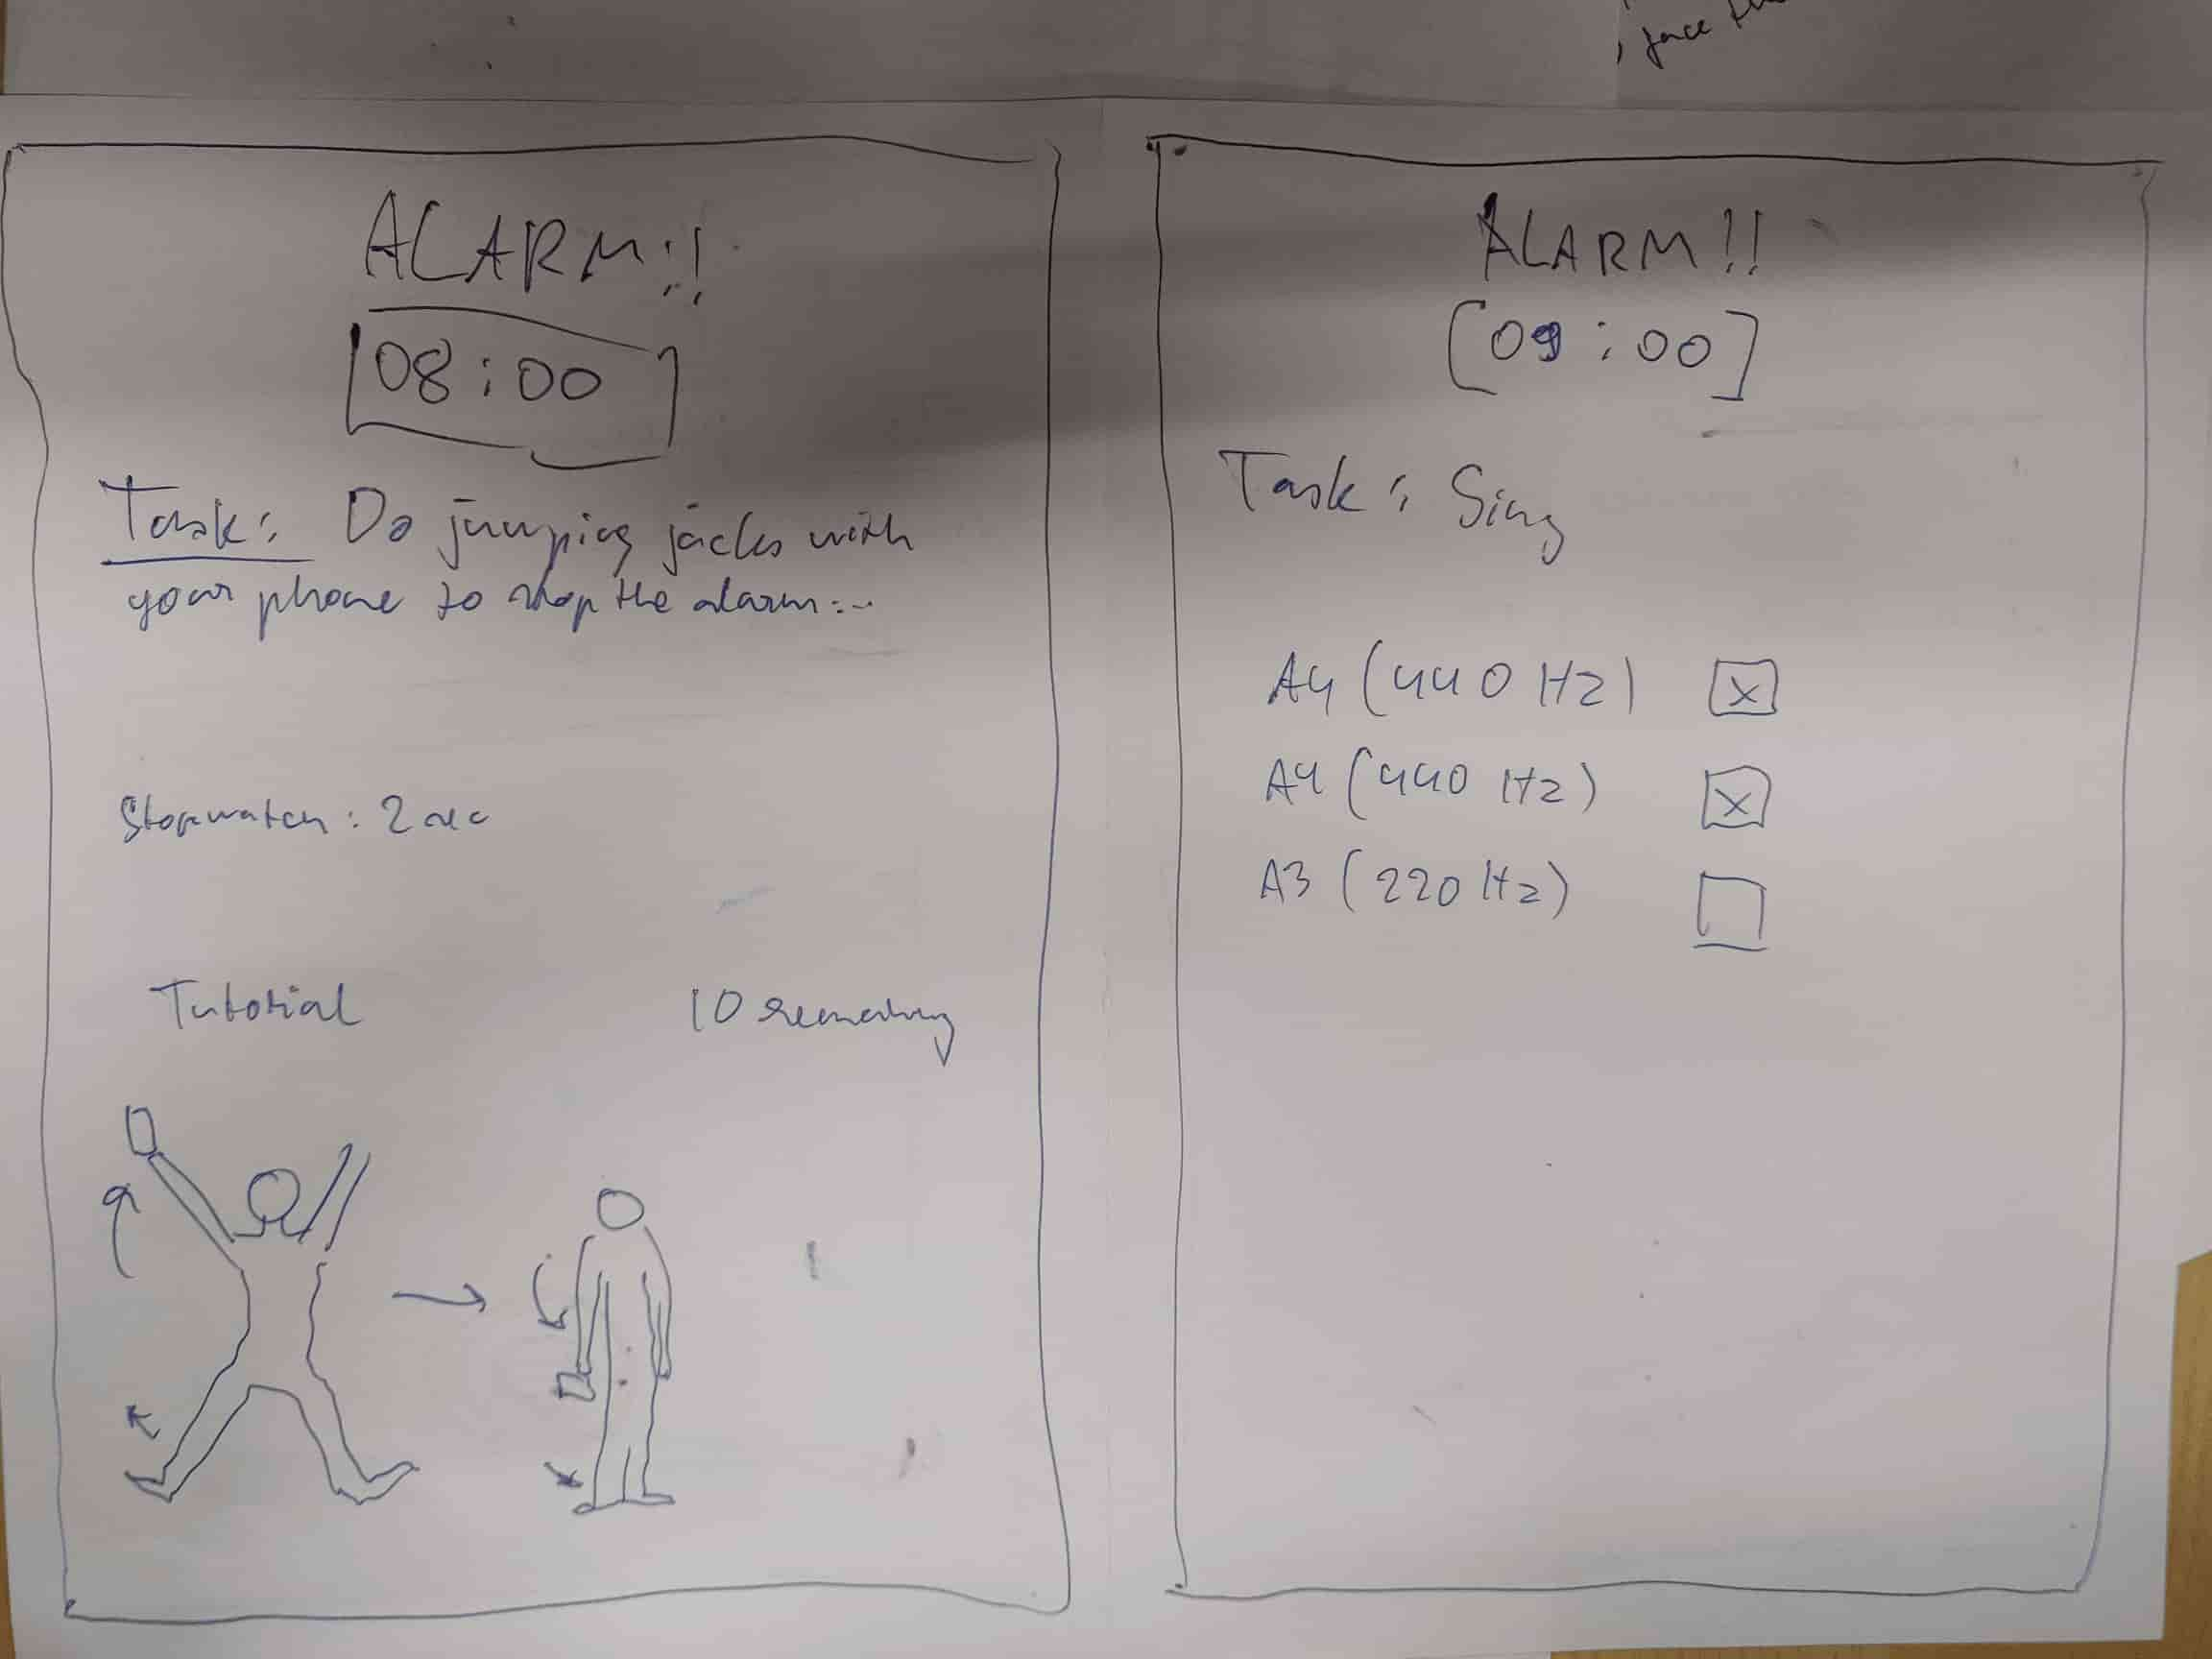 , face
ALARM!!
08:00
Task: Do jumping jacks with
your phone to stop the alarm...
Stopwatch: 2 sec
Tutorial
10 remaining
ALARM!!
[09:00]
Task: Sing
A4 (440 Hz) [x]
A4 (440 Hz) [x]
A3 (220 Hz)